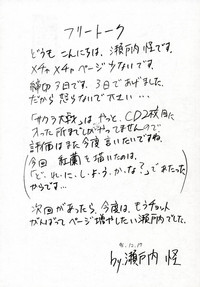 フリートーク
どうも こんにちは、瀬戸内 怪です。
メチャメチャ ページ少ないです。
締切 3日です。3日であげました。
だから 怒らないで 下さい…。
「サクラ大戦」は、やっと、CD2枚目に
入った所までしかやってませんので
評価はまた今度言いたいですね。
今回 紅蘭を描いたのは、
「ど．れ．に．し．よ．う．か．な？」であたった
からです…
次回があったら、今度は、もうチョット
がんばってページ増やしたい瀬戸内でした。
by.瀬戸内 怪